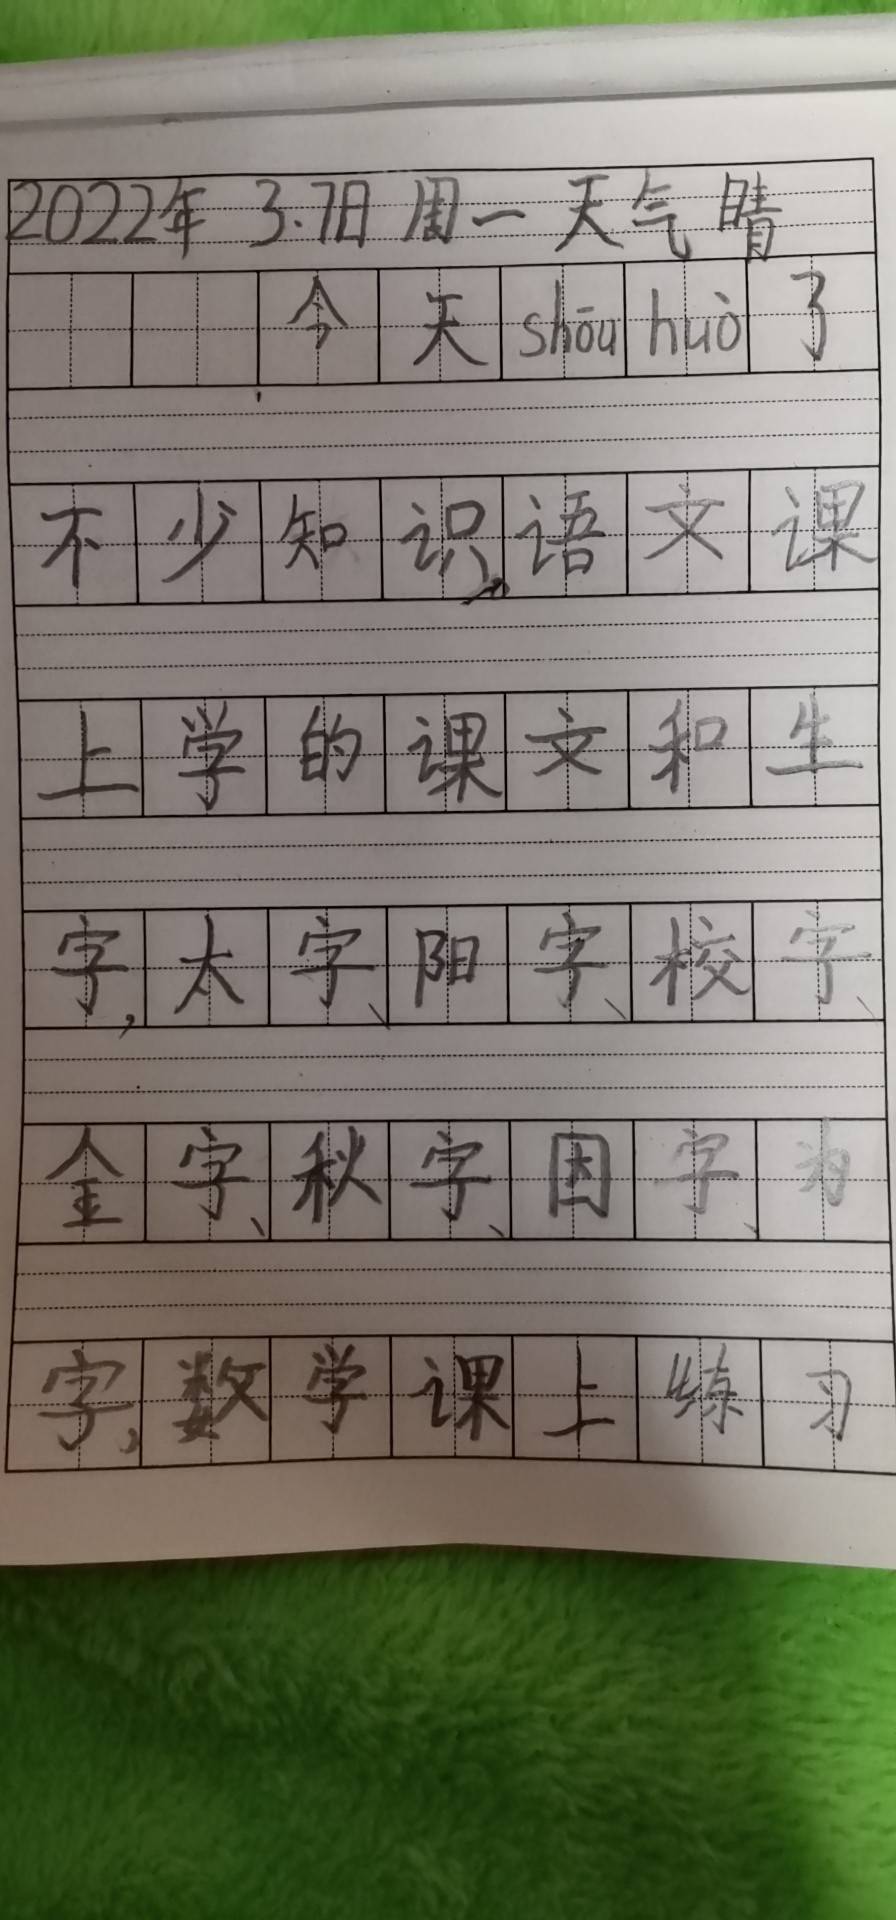 2022年 3.7日 周一 天气 晴
今天shōu huò了
不少知识,语文课
上学的课文和生
字,太字、阳字、校字、
金字、秋字、因字、为
字,数学课上练习